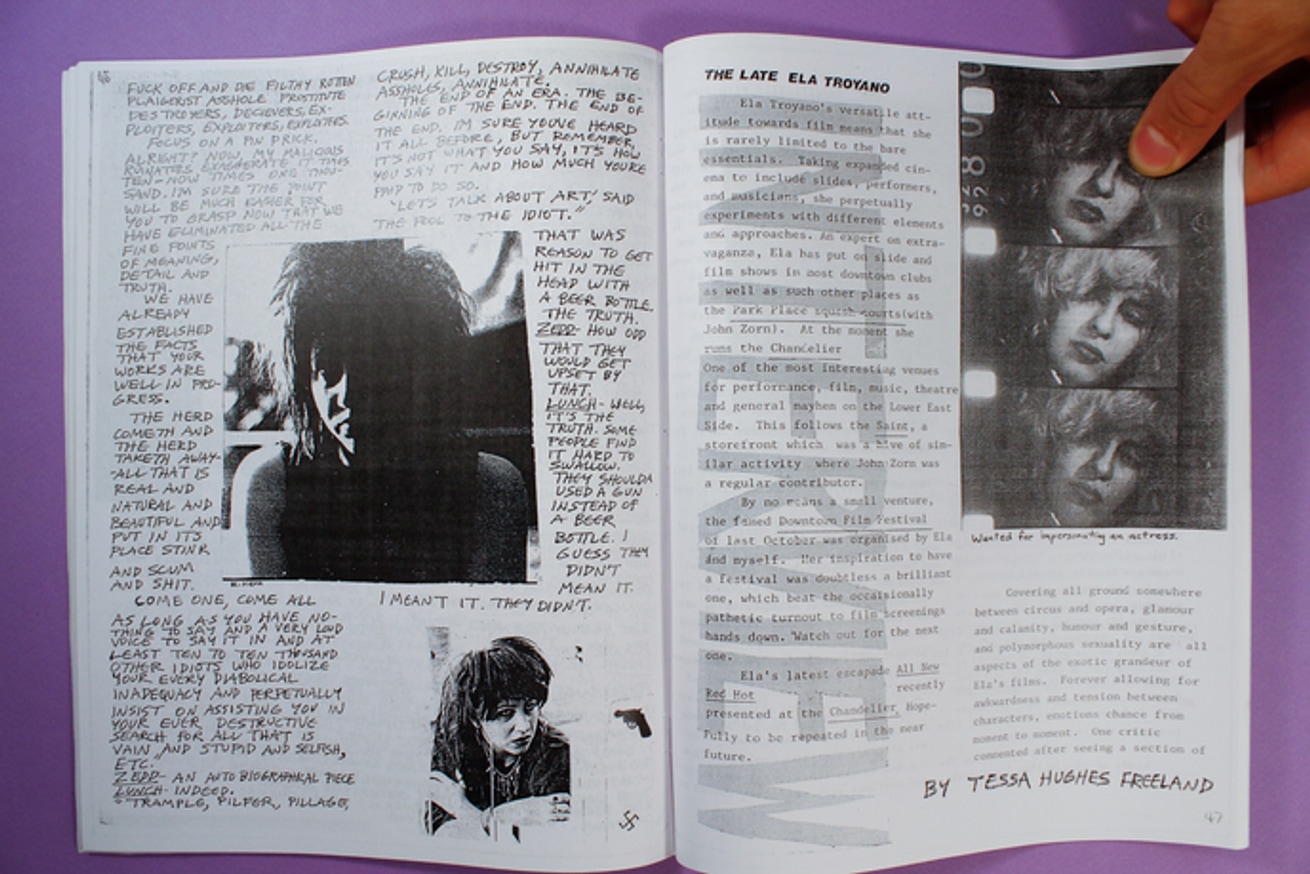 46
FUCK OFF AND DIE FILTHY ROTTEN
PLAIGERIST ASSHOLE PROSTITUTE
DESTROYERS, DECIEVERS, EX-
PLOITERS, EXPLOITERS, EXPLOITERS.
FOCUS ON A PIN PRICK.
ALRIGHT? NOW, MY MALICIOUS
RUINATIES EXAGGERATE IT TIMES
TEN - NOW TIMES ONE THOU-
SAND. I'M SURE THE POINT
WILL BE MUCH EASIER FOR
YOU TO GRASP NOW THAT WE
HAVE ELIMINATED ALL THE
FINE POINTS
OF MEANING,
DETAIL AND
TRUTH.
WE HAVE
ALREADY
ESTABLISHED
THE FACTS
THAT YOUR
WORKS ARE
WELL IN PRO-
GRESS.
THE HERD
COMETH AND
THE HERD
TAKETH AWAY-
ALL THAT IS
REAL AND
NATURAL AND
BEAUTIFUL AND
PUT IN ITS
PLACE STINK
AND SCUM
AND SHIT.
COME ONE, COME ALL
AS LONG AS YOU HAVE NO-
THING TO SAY AND A VERY LOUD
VOICE TO SAY IT IN AND AT
LEAST TEN TO TEN THOUSAND
OTHER IDIOTS WHO IDOLIZE
YOUR EVERY DIABOLICAL
INADEQUACY AND PERPETUALLY
INSIST ON ASSISTING YOU IN
YOUR EVER DESTRUCTIVE
SEARCH FOR ALL THAT IS
VAIN AND STUPID AND SELFISH,
ETC."
ZEDD- AN AUTOBIOGRAPHICAL PIECE
LUNCH- INDEED.
"TRAMPLE, PILFER, PILLAGE,
CRUSH, KILL, DESTROY, ANNIHILATE
ASSHOLES, ANNIHILATE.
THE END OF AN ERA. THE BE-
GINNING OF THE END. THE END OF
THE END. I'M SURE YOU'VE HEARD
IT ALL BEFORE, BUT REMEMBER,
IT'S NOT WHAT YOU SAY, IT'S HOW
YOU SAY IT AND HOW MUCH YOU'RE
PAID TO DO SO.
"LET'S TALK ABOUT ART,' SAID
THE FOOL TO THE IDIOT."
THAT WAS
REASON TO GET
HIT IN THE
HEAD WITH
A BEER BOTTLE.
THE TRUTH.
ZEDD- HOW ODD
THAT THEY
WOULD GET
UPSET BY
THAT.
LUNCH- WELL,
IT'S THE
TRUTH. SOME
PEOPLE FIND
IT HARD TO
SWALLOW.
THEY SHOULDA
USED A GUN
INSTEAD OF
A BEER
BOTTLE. I
GUESS THEY
DIDN'T
MEAN IT.
I MEANT IT. THEY DIDN'T.
THE LATE ELA TROYANO
Ela Troyano's versatile att-
itude towards film means that she
is rarely limited to the bare
essentials. Taking expanded cin-
ema to include slides, performers,
and musicians, she perpetually
experiments with different elements
and approaches. An expert on extra-
vaganza, Ela has put on slide and
film shows in most downtown clubs
as well as such other places as
the Park Place squash courts(with
John Zorn). At the moment she
runs the Chandelier
One of the most interesting venues
for performance, film, music, theatre
and general mayhem on the Lower East
Side. This follows the Saint, a
storefront which was a hive of sim-
ilar activity where John Zorn was
a regular contributor.
By no means a small venture,
the famed Downtown Film Festival
of last October was organised by Ela
and myself. Her inspiration to have
a festival was doubtless a brilliant
one, which beat the occaisionally
pathetic turnout to film screenings
hands down. Watch out for the next
one.
Ela's latest escapade All New
Red Hot recently
presented at the Chandelier, Hope-
fully to be repeated in the near
future.
928
Wanted for impersonating an actress.
Covering all ground somewhere
between circus and opera, glamour
and calamity, humour and gesture,
and polymorphous sexuality are all
aspects of the exotic grandeur of
Ela's films. Forever allowing for
awkwardness and tension between
characters, emotions chance from
moment to moment. One critic
commented after seeing a section of
BY TESSA HUGHES FREELAND
47